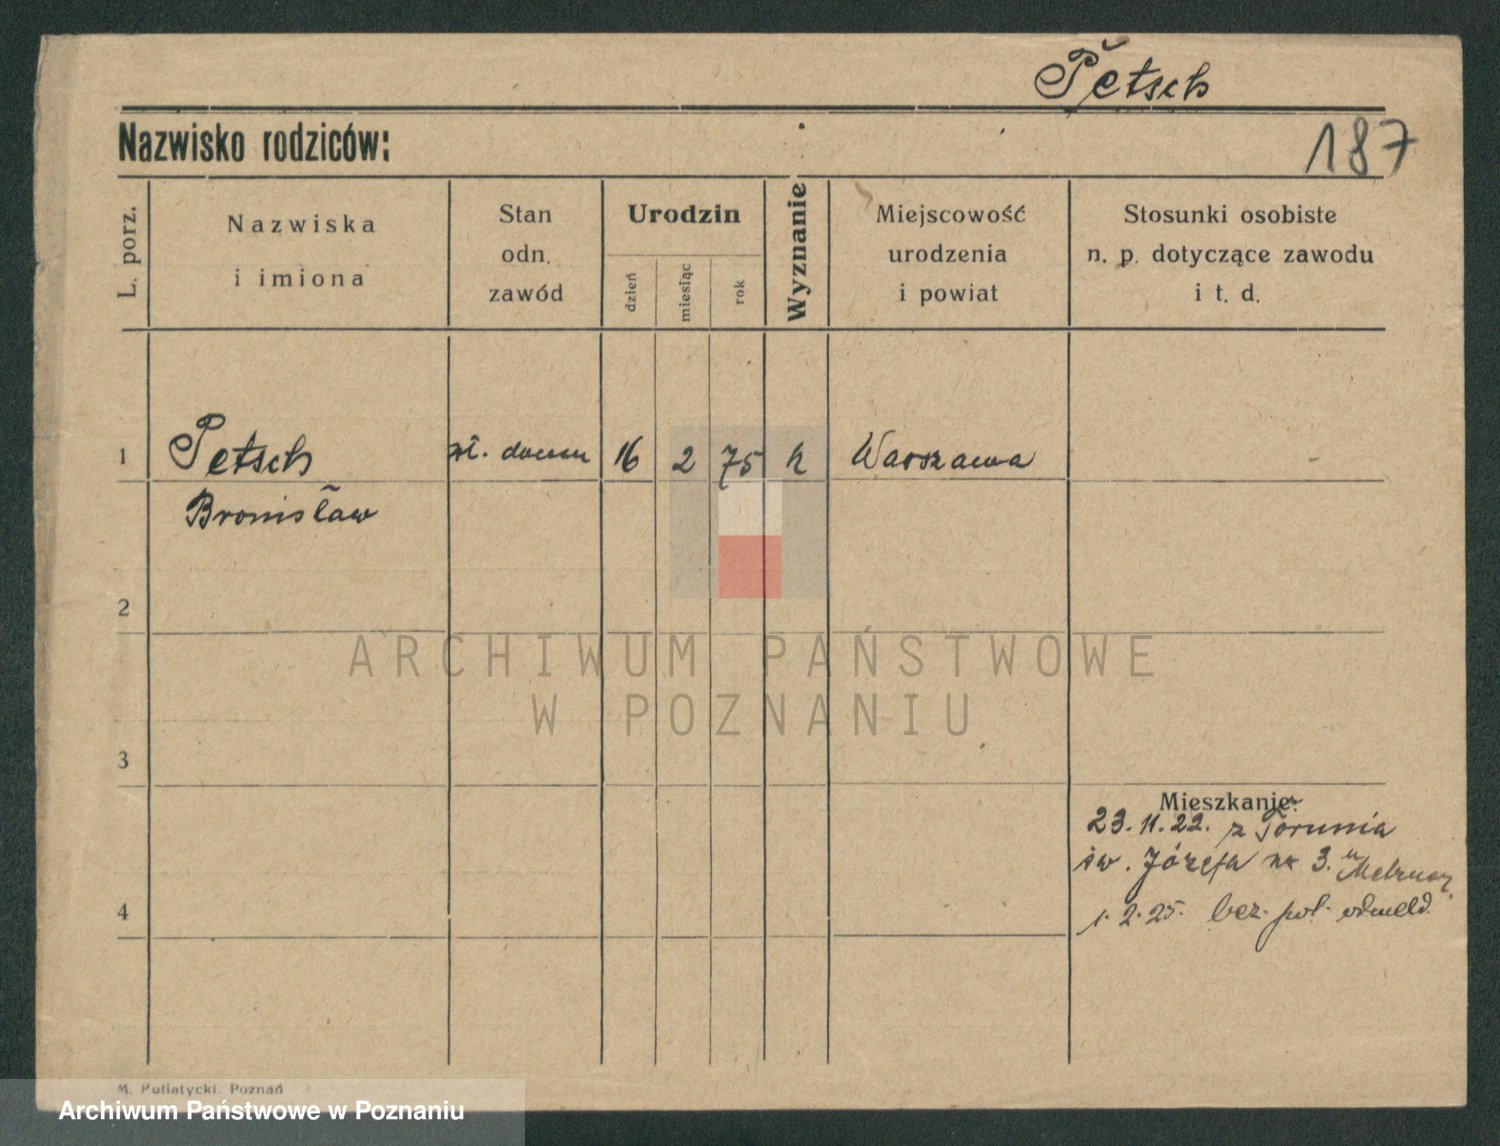 Petsch
Nazwisko rodziców:
187
L. porz.
Nazwiska
i imiona
Stan
odn.
zawód
Urodzin
dzień
miesiąc
rok
Wyznanie
Miejscowość
urodzenia
i powiat
Stosunki osobiste
n. p. dotyczące zawodu
i t. d.
1 Petsch wł. domu 16 2 75 k Warszawa
Bronisław
2
ARCHIWUM PAŃSTWOWE
W POZNANIU
3
Mieszkanie:
23. 11. 22. z Torunia
św. Józefa nr 3. u
4
1. 2. 25. bez pol. odmeld.
M. Putiatycki, Poznań
Archiwum Państwowe w Poznaniu